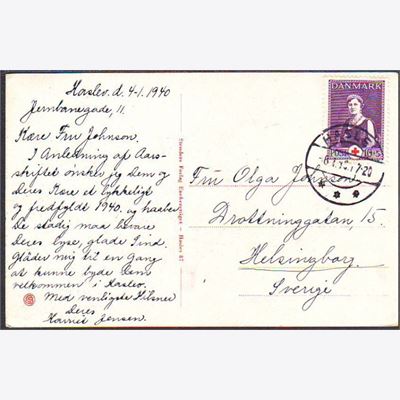 Haslev. d. 4-1. 1940
Jernbanegade, 11.
Kære Fru Johnson.
I Anledning af Aars-
skriftet ønsker jeg Dem og
Deres Kære et lykkeligt
og fredfyldt 1940. og haaber
De stadig maa bevare
Deres lyse, glade Sind.
Glæder mig til en Gang
at kunne byde Dem
velkommen i Haslev.
Med venligste Hilsner
Deres
Jensen.
Stenders Forlag
DANMARK
HASLE
Fru Olga Johnson
Drottninggatan, 15.
Helsingborg.
Sverige